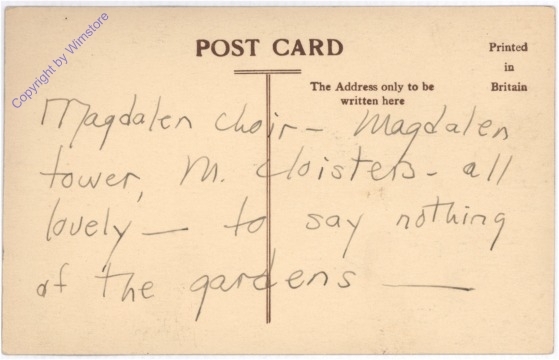 Copyright by Wimstore
POST CARD
Printed
in
Britain
The Address only to be
written here
Magdalen choir – Magdalen
tower, M. Cloisters – all
lovely — to say nothing
of the gardens —